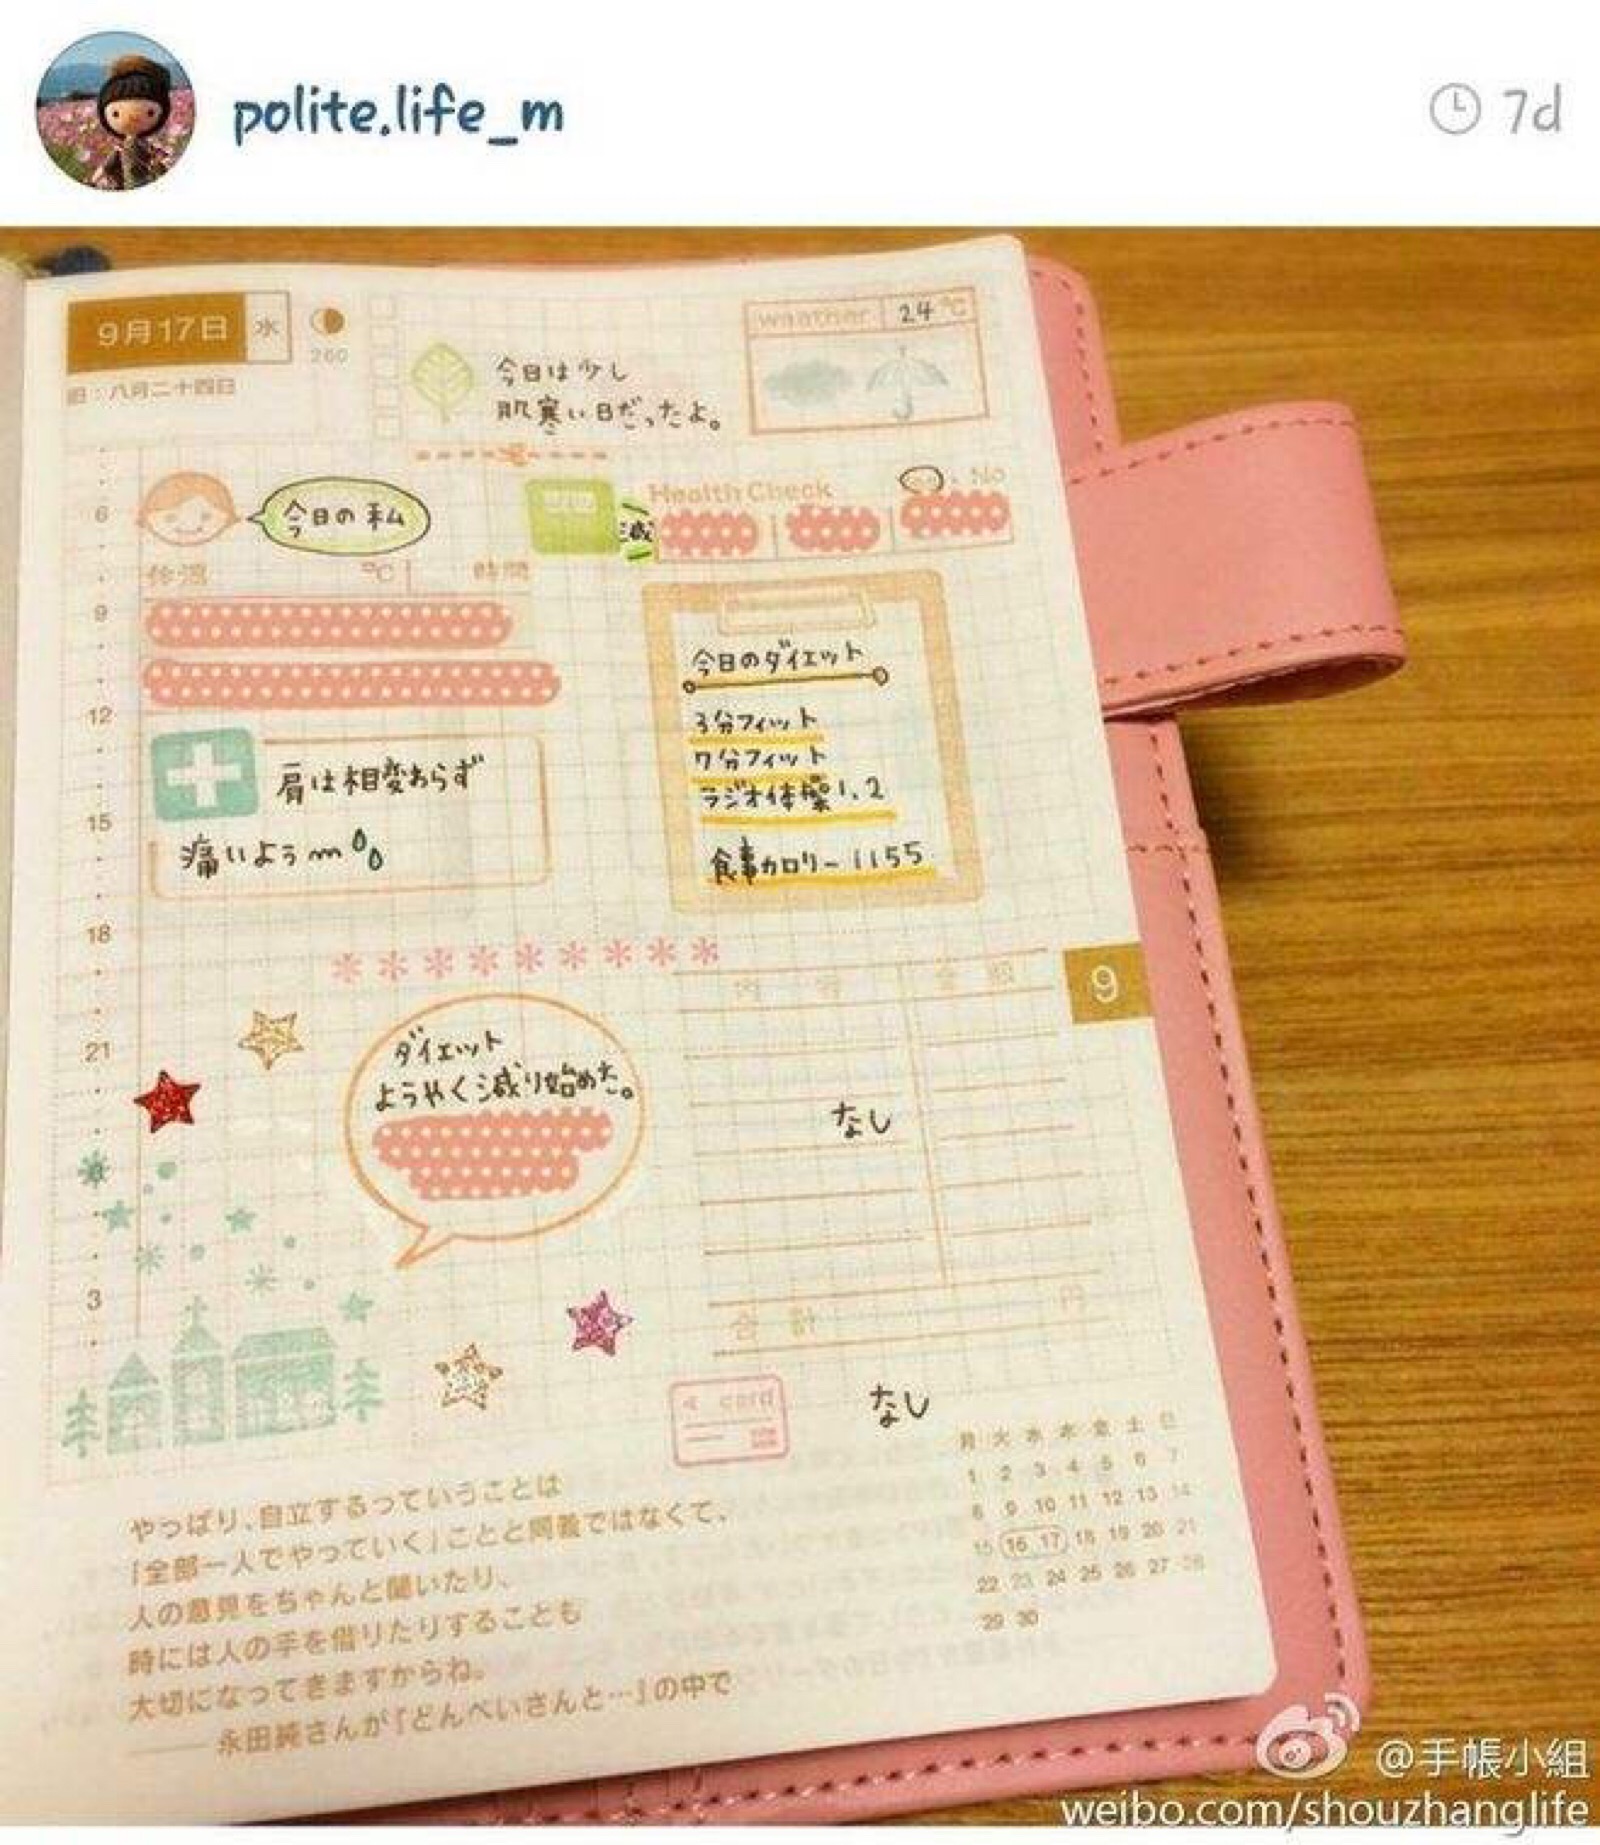 polite.life_m
7d
9月17日 水
260
旧:八月二十四日
今日は少し
肌寒い日だったよ。
weather 24 ℃
6
今日の私
減
Health Check
No
体温 ℃ 時間
9
12
15
18
21
3
肩は相変わらず
痛いよぅm
今日のダイエット
3分フィット
7分フィット
ラジオ体操1.2
食事カロリー1155
内容 金額
9
ダイエット
ようやく減り始めた。
なし
合計 円
card
なし
月 火 水 木 金 土 日
1 2 3 4 5 6 7
8 9 10 11 12 13 14
15 16 17 18 19 20 21
22 23 24 25 26 27 28
29 30
やっぱり、自立するっていうことは
「全部一人でやっていく」ことと同義ではなくて、
人の意見をちゃんと聞いたり、
時には人の手を借りたりすることも
大切になってきますからね。
——永田純さんが『どんべいさんと…』の中で
@手帳小組
weibo.com/shouzhanglife